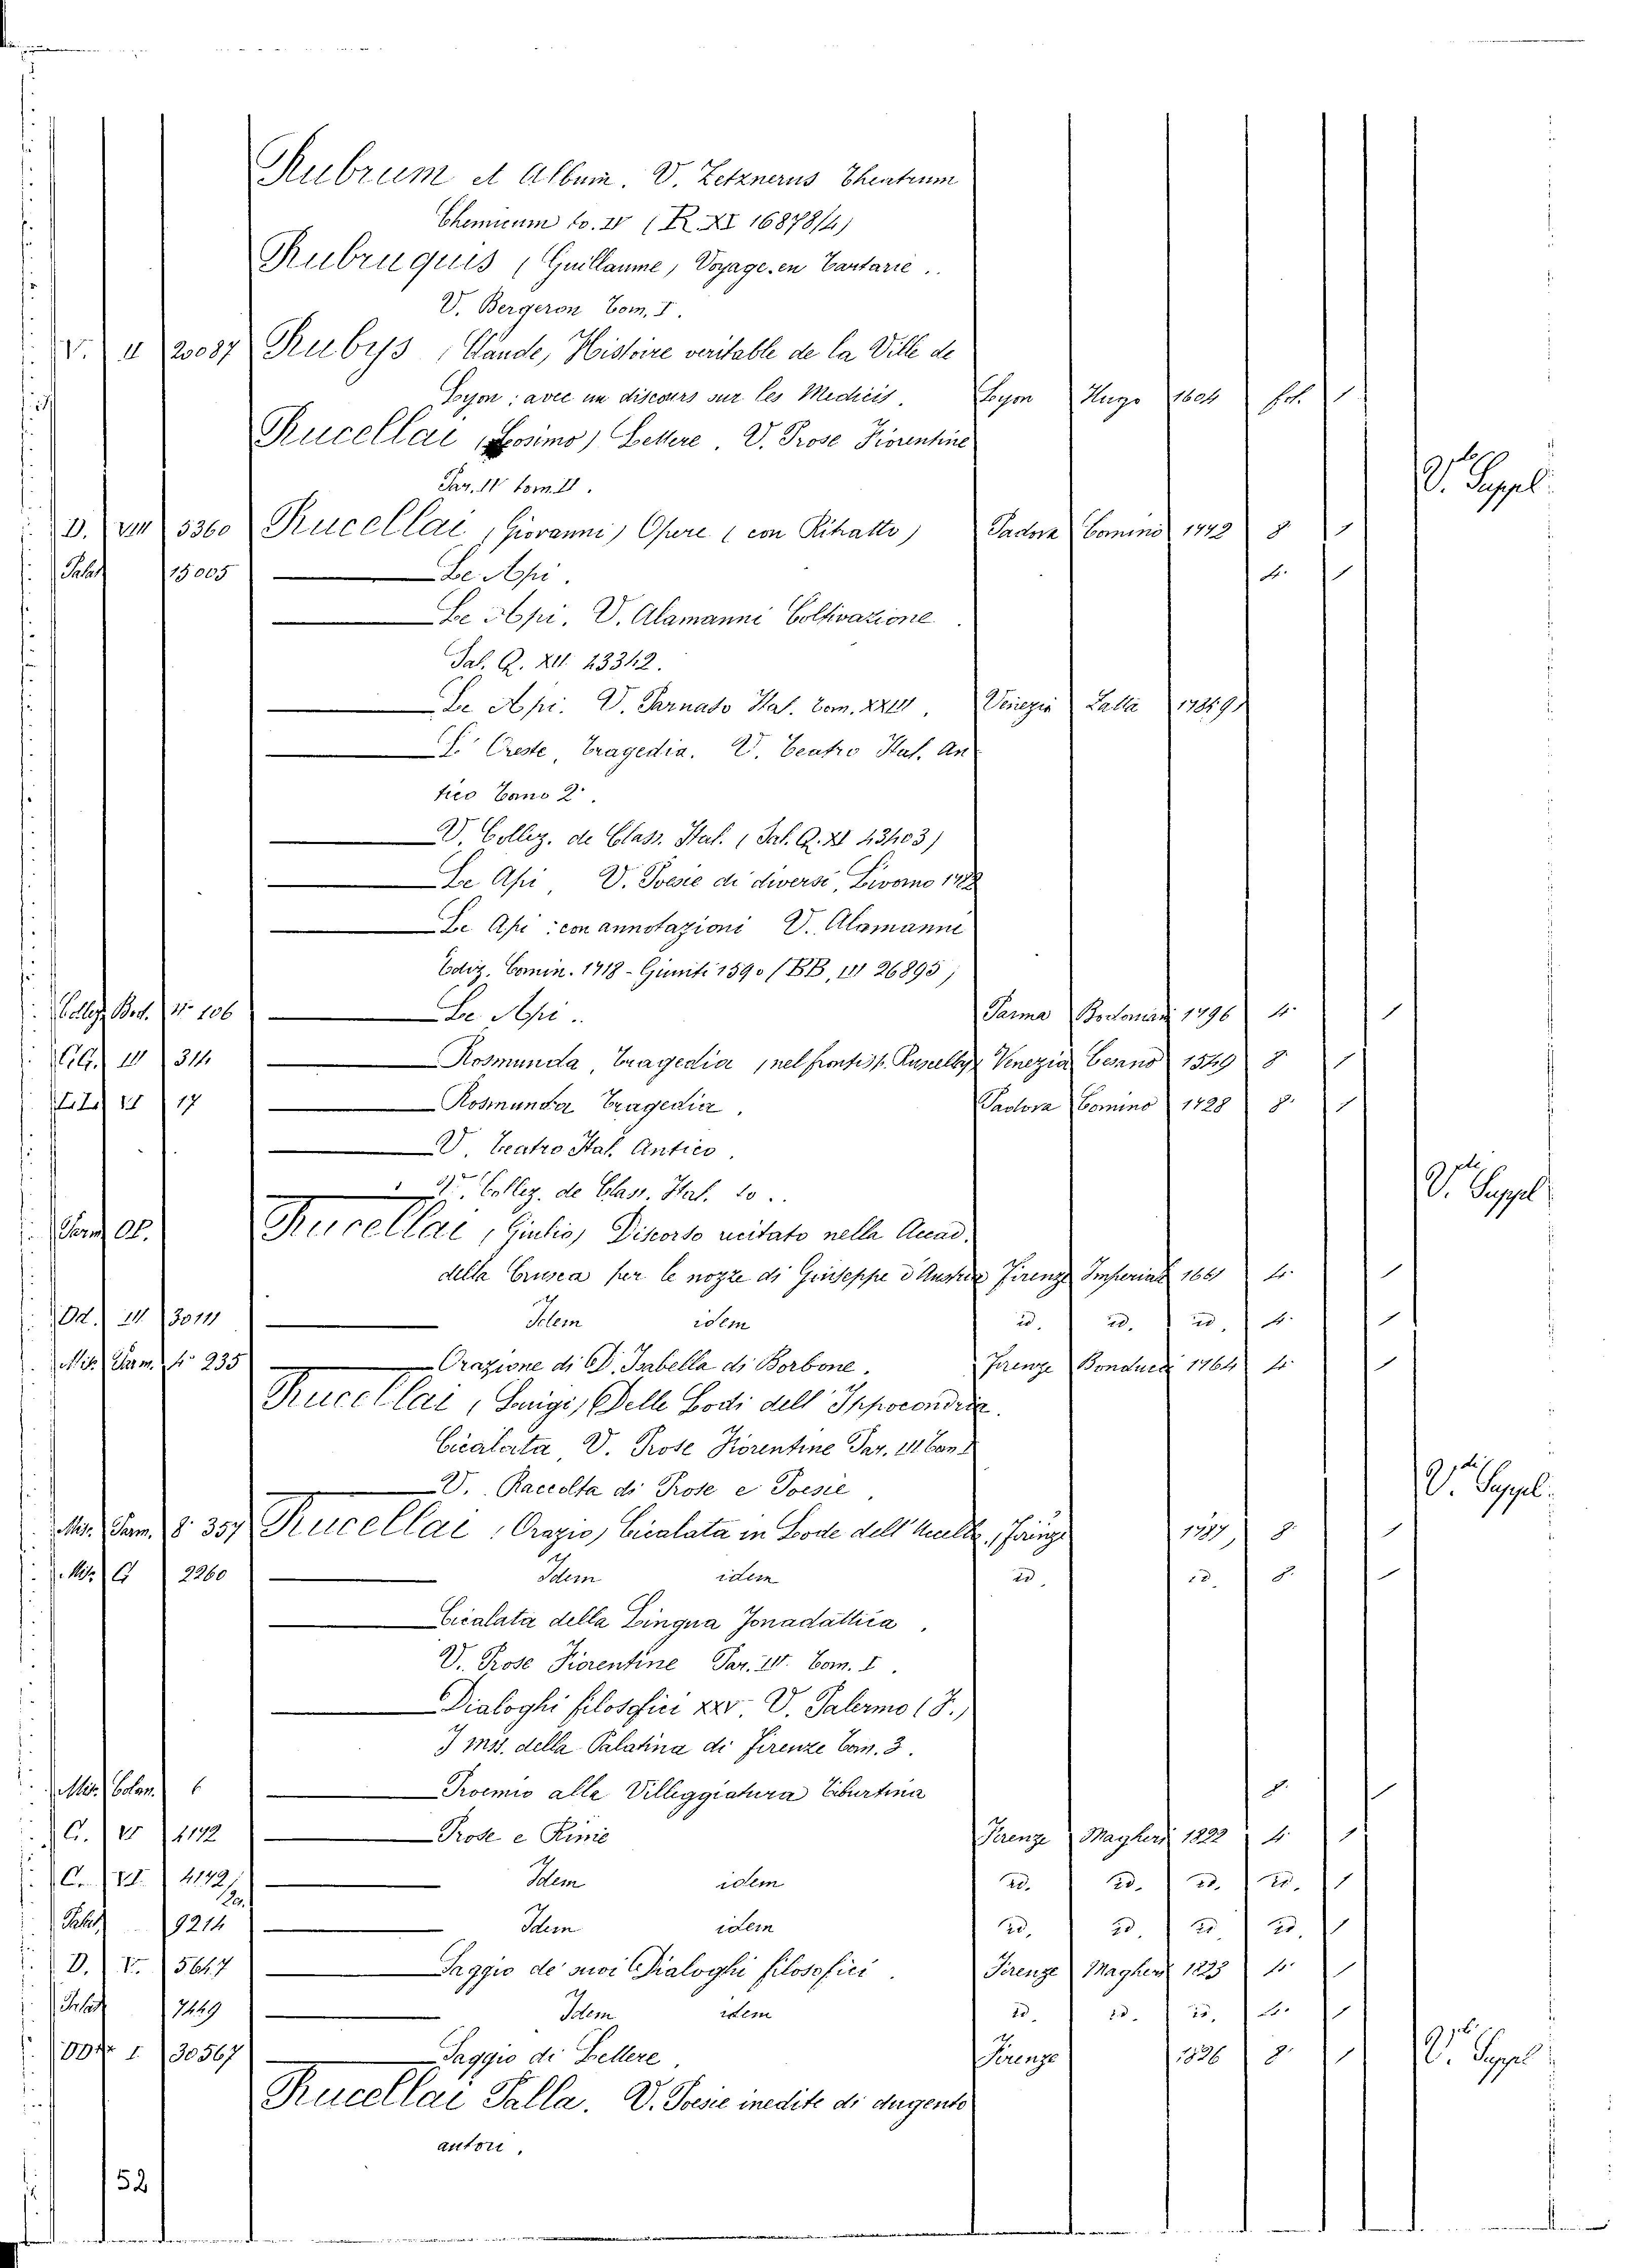 Rubrum et Album. V. Zetznerus Theatrum
Chemicum to. IV (R. XI 16878/4)
Rubruquis (Guillaume) Voyage en Tartarie..
V. Bergeron Tom. I.
V. II 20087 Rubys Claude, Histoire veritable de la Ville de
Lyon: avec un discours sur les Medicis. Lyon Hugo 1604 fol. 1
Rucellai (Cosimo) Lettere. V. Prose Fiorentine
Par. IV tom. II.
V. Suppl.
D. VIII 5360 Rucellai (Giovanni) Opere (con Ritratto) Padova Comino 1772 8 1
Palat 15005 Le Api. 4. 1
Le Api. V. Alamanni Coltivazione.
Pal. Q. XII. 23342.
Le Api. V. Parnaso Ital. Tom. XXIII. Venezia Zatta
L'Oreste, Tragedia. V. Teatro Ital. An
tico Tomo 2.
V. Collez. de Class. Ital. (Pal. Q. XI 23403)
Le Api, V. Poesie di diversi, Livorno
Le Api: con annotazioni V. Alamanni
Ediz. Comin. 1718 - Giunti 1590 (BB, III 26895)
Collez. Bod. N. 106 Le Api.. Parma Bodoniani 1796 4. 1
GG. III 314 Rosmunda, Tragedia (nel frontisp. Ruscelley) Venezia 1549 8 1
17 Rosmunda Tragedia. Padova Comino 1728 8. 1
V. Teatro Ital. Antico.
V. Collez. de Class. Ital. to..
V. Suppl.
Rucellai, (Giulio) Discorso recitato nella Accad.
della Crusca per le nozze di Giuseppe d'Austria Firenze Imperiale 1661 4. 1
Od. III 30111 Idem idem id. id. id. 4. 1
Mis. Parm. 4° 235 Orazione di D. Isabella di Borbone. Firenze Bonducci 1764 4. 1
Rucellai, (Luigi) Delle Lodi dell' Ippocondria.
Cicalata, V. Prose Fiorentine Par. III Tom.
V. Raccolta di Prose e Poesie,
V. Suppl.
Mis. Parm. 8. 357 Rucellai, (Orazio) Cicalata in Lode dell' Firenze 8. 1
Mis. G 2260 Idem idem id. id. 8. 1
Cicalata della Lingua Jonadattica,
V. Prose Fiorentine Par. III. Tom. I.
Dialoghi filosofici XXV. V. Palermo (F.)
I mss. della Palatina di Firenze Tom. 3.
Mis. Colon. 6 Proemio alla Villeggiatura Tiburtina 8. 1
C. VI 4172 Prose e Rime Firenze Magheri 1822 4. 1
C. VI. 4172/ Idem idem id. id. id. id. 1
Palat 9214 Idem idem id. id. id. id. 1
D. V. 5647 Saggio de' suoi Dialoghi filosofici. Firenze Magheri 1823 4. 1
Palat 7449 Idem idem id. id. id. 4. 1
I 30567 Saggio di Lettere, Firenze 1826 8. 1
V. Suppl.
Rucellai Palla. V. Poesie inedite di dugento
autori.
52